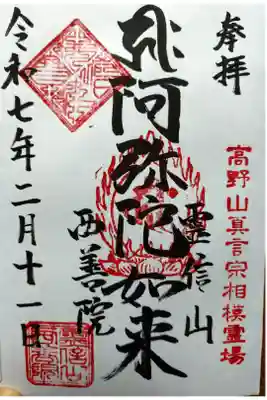 奉拝
高野山真言宗相模霊場
靈信山
阿弥陀如来
西善院
令和七年二月十一日